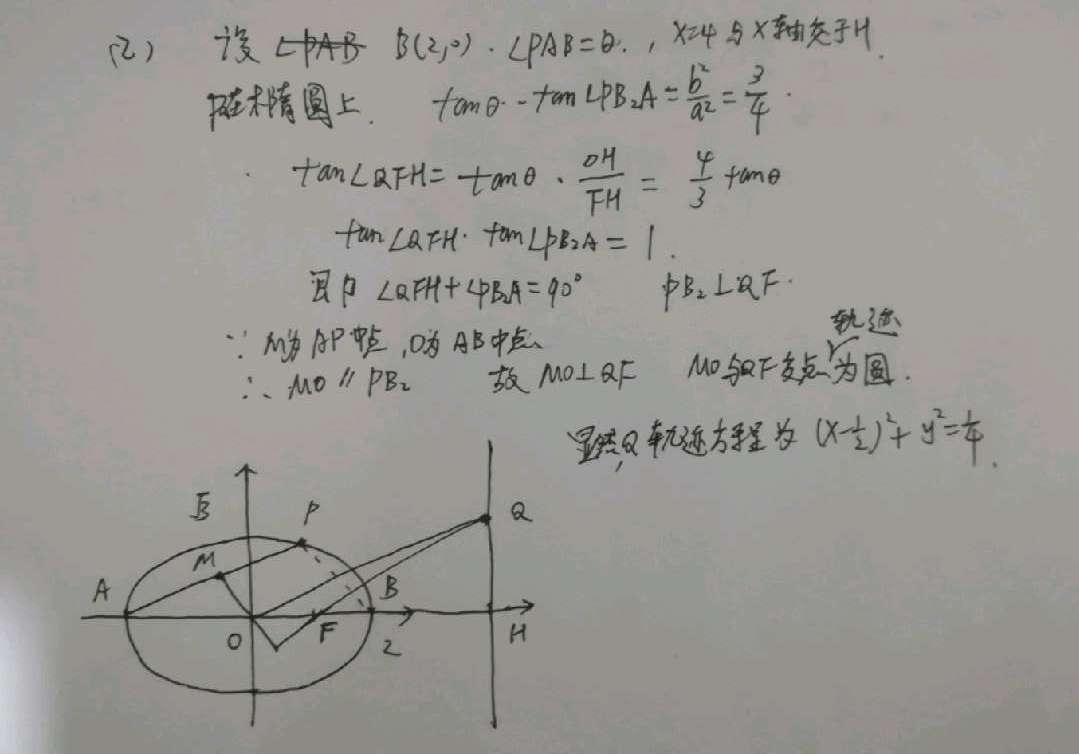 (2) 设 ∠PAB B(2,0). ∠PAB=θ., x=4与x轴交于H.
P在椭圆上. tanθ·tan∠PB₂A=b²/a²=3/4.
tan∠QFH=tanθ·OH/FH=4/3 tanθ
tan∠QFH·tan∠PB₂A=1.
即 ∠QFH+∠PB₂A=90° PB₂⊥QF.
∵ M为AP中点,O为AB中点
轨迹
∴ MO∥PB₂ 故MO⊥QF MO与QF交点为圆.
显然,Q轨迹方程为 (x-1/2)²+y²=1/4.
√3 P Q
M
A B
O F 2 H